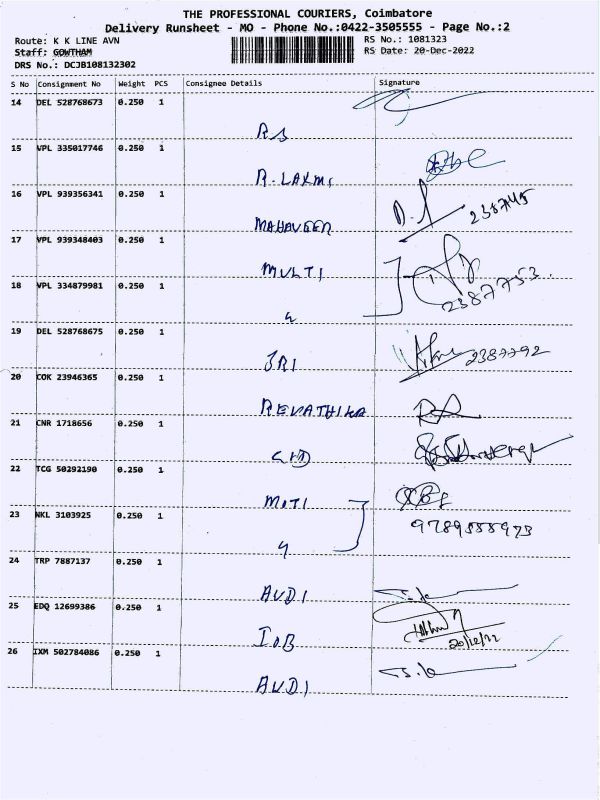 THE PROFESSIONAL COURIERS, Coimbatore
Delivery Runsheet - MO - Phone No.:0422-3505555 - Page No.:2
Route: K K LINE AVN
RS No.: 1081323
Staff: GOWTHAM
RS Date: 20-Dec-2022
DRS No.: DCJB108132302
S No Consignment No Weight PCS Consignee Details Signature
14 DEL 528768673 0.250 1
RS
15 VPL 335017746 0.250 1
R.LAXMI
16 VPL 939356341 0.250 1
MAHAVEER
238745
17 VPL 939348403 0.250 1
MULTI
18 VPL 334879981 0.250 1
2387753.
19 DEL 528768675 0.250 1
SRI
2387792
20 COK 23946365 0.250 1
REVATHIKA
21 CNR 1718656 0.250 1
22 TCG 50292190 0.250 1
MOTI
23 NKL 3103925 0.250 1
24 TRP 7887137 0.250 1
AUDI
25 EDQ 12699386 0.250 1
IOB
20/12/22
26 IXM 502784086 0.250 1
AUDI